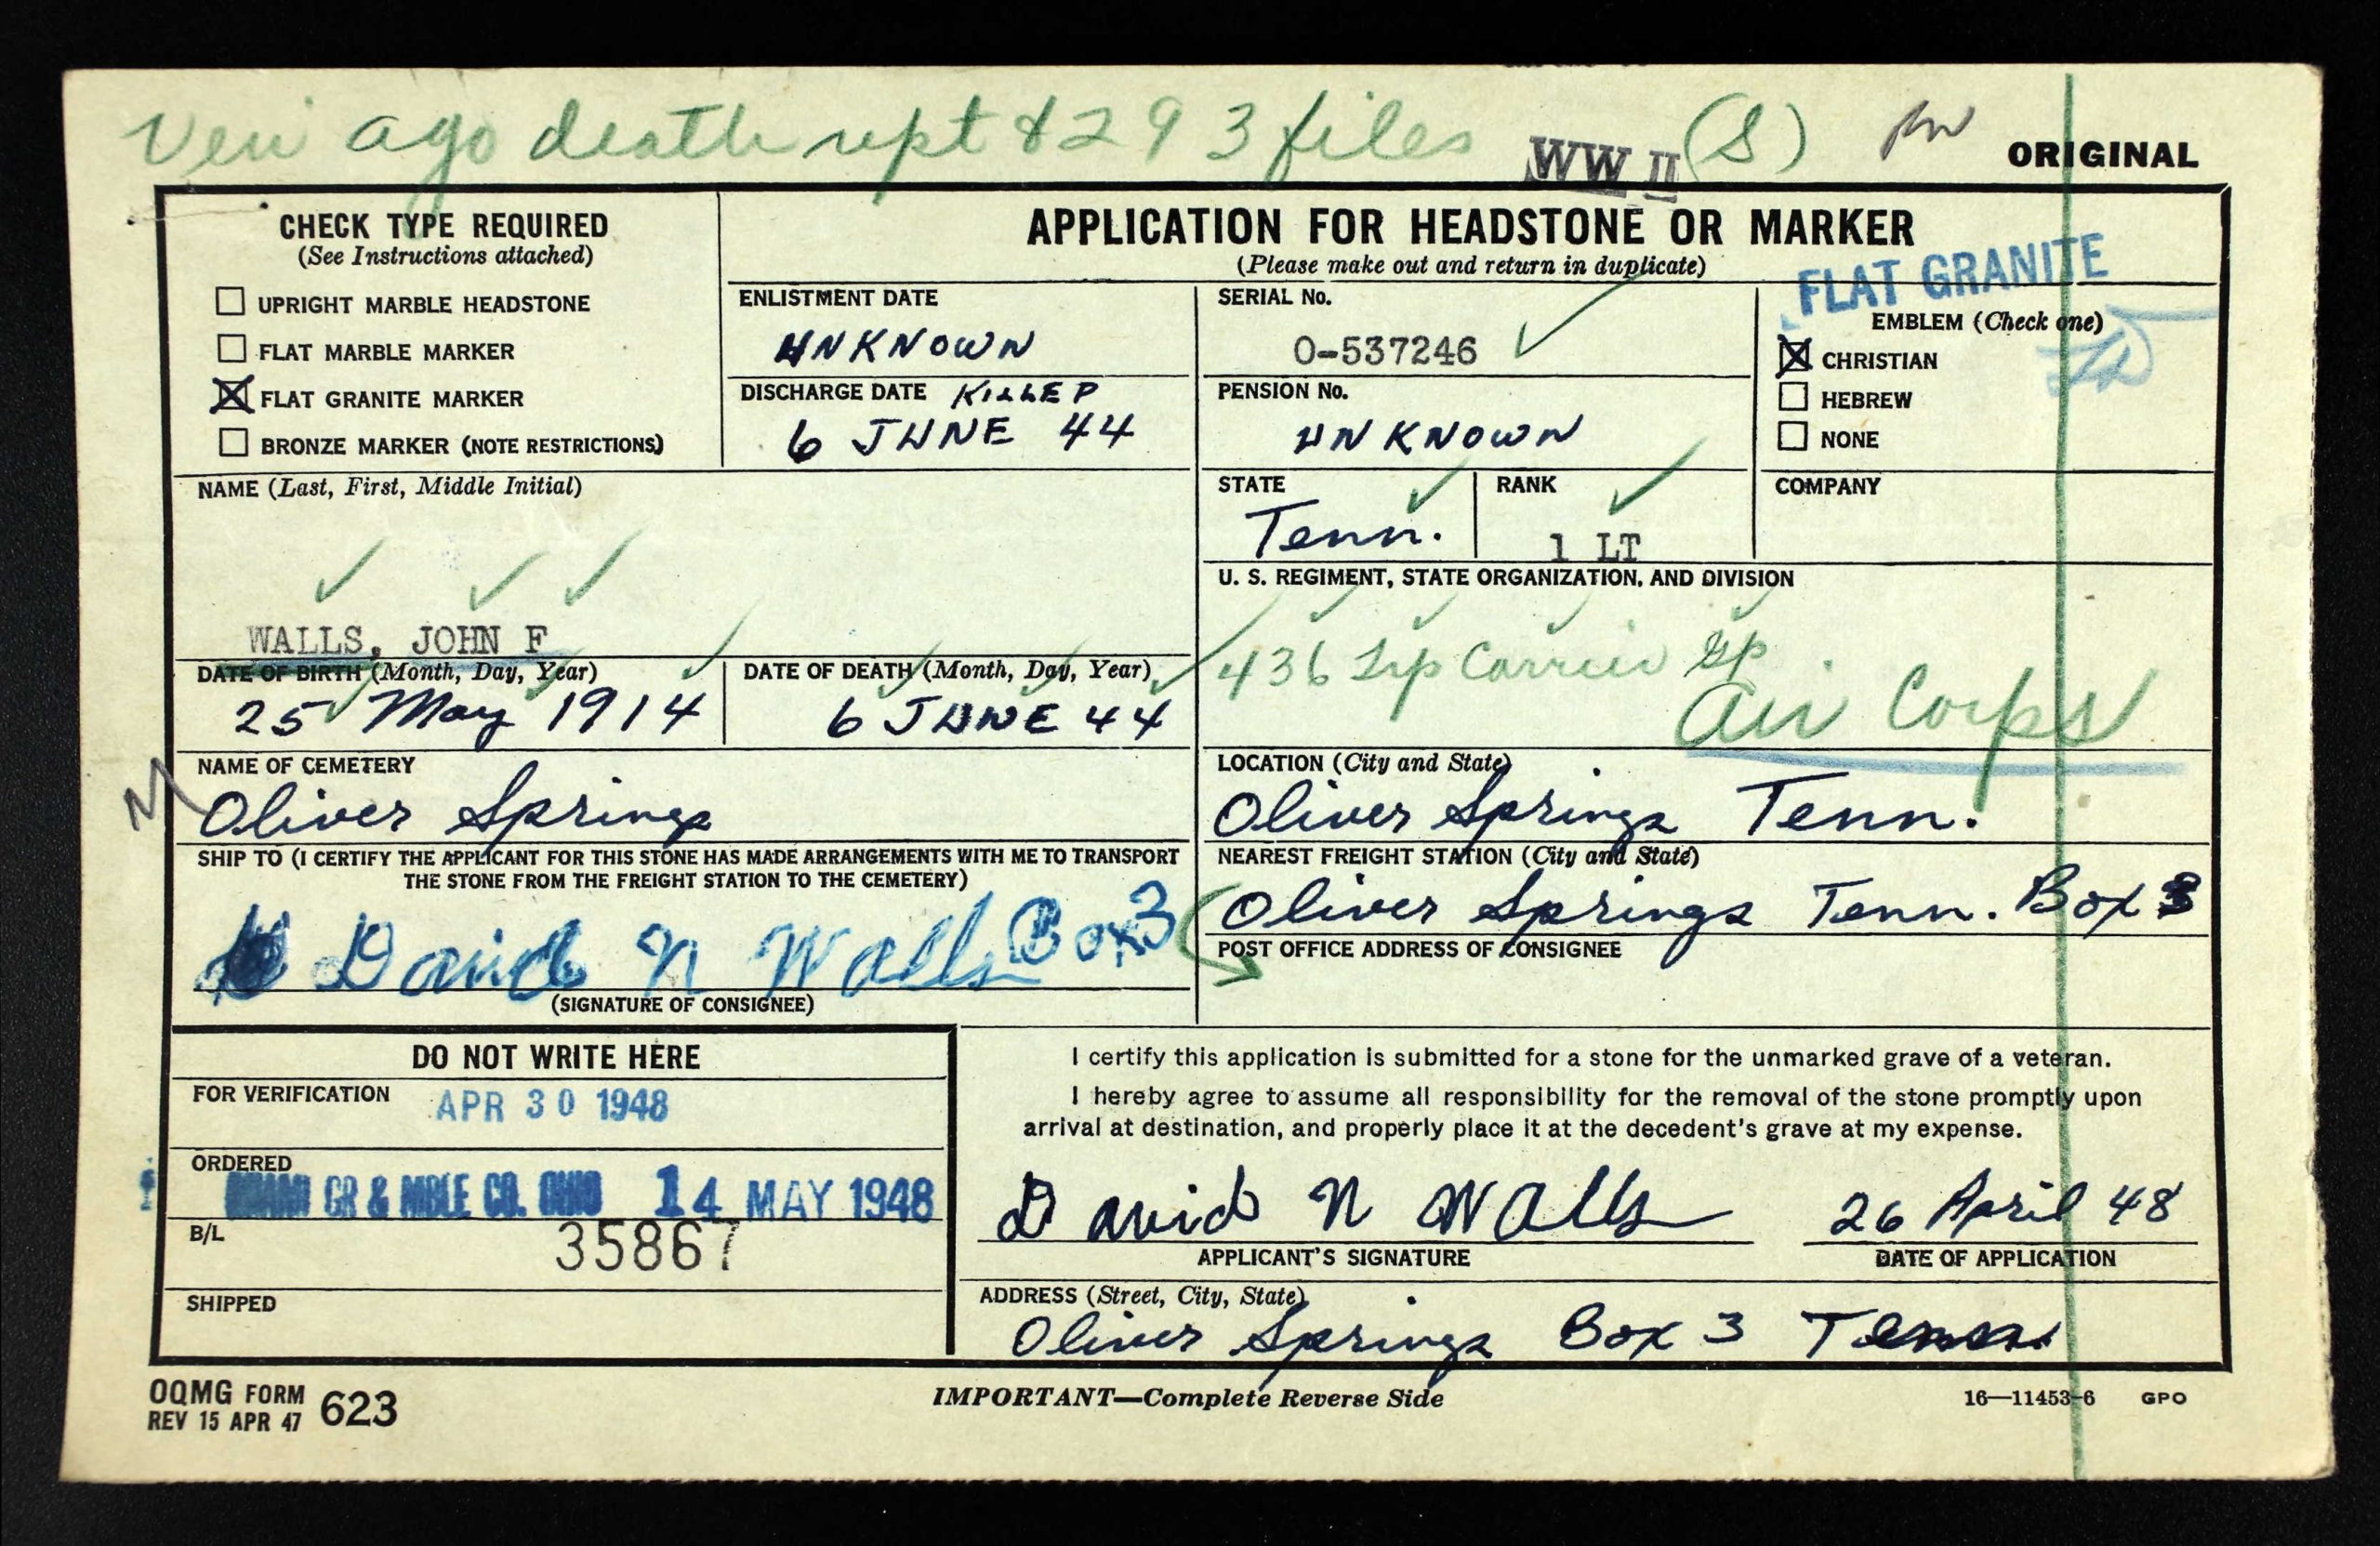 Veri ago death rept & 293 files WW II (S)
ORIGINAL
CHECK TYPE REQUIRED
(See Instructions attached)
UPRIGHT MARBLE HEADSTONE
FLAT MARBLE MARKER
FLAT GRANITE MARKER
BRONZE MARKER (NOTE RESTRICTIONS)
APPLICATION FOR HEADSTONE OR MARKER
(Please make out and return in duplicate)
FLAT GRANITE
ENLISTMENT DATE
UNKNOWN
DISCHARGE DATE KILLED
6 JUNE 44
SERIAL No.
O-537246
PENSION No.
UNKNOWN
EMBLEM (Check one)
CHRISTIAN
HEBREW
NONE
NAME (Last, First, Middle Initial)
WALLS, JOHN F
STATE
Tenn.
RANK
1 LT
COMPANY
U. S. REGIMENT, STATE ORGANIZATION, AND DIVISION
436 Trp Carrier Gp
Air Corps
DATE OF BIRTH (Month, Day, Year)
25 May 1914
DATE OF DEATH (Month, Day, Year)
6 JUNE 44
NAME OF CEMETERY
Oliver Springs
LOCATION (City and State)
Oliver Springs Tenn.
SHIP TO (I CERTIFY THE APPLICANT FOR THIS STONE HAS MADE ARRANGEMENTS WITH ME TO TRANSPORT
THE STONE FROM THE FREIGHT STATION TO THE CEMETERY)
David N Walls Box 3
(SIGNATURE OF CONSIGNEE)
NEAREST FREIGHT STATION (City and State)
Oliver Springs Tenn. Box 3
POST OFFICE ADDRESS OF CONSIGNEE
DO NOT WRITE HERE
FOR VERIFICATION APR 30 1948
ORDERED
GR & MBLE CO. OHIO 14 MAY 1948
B/L
35867
SHIPPED
I certify this application is submitted for a stone for the unmarked grave of a veteran.
I hereby agree to assume all responsibility for the removal of the stone promptly upon
arrival at destination, and properly place it at the decedent's grave at my expense.
David N Walls 26 April 48
APPLICANT'S SIGNATURE DATE OF APPLICATION
ADDRESS (Street, City, State)
Oliver Springs Box 3 Tenn.
OQMG FORM 623
REV 15 APR 47
IMPORTANT—Complete Reverse Side
16—11453-6 GPO